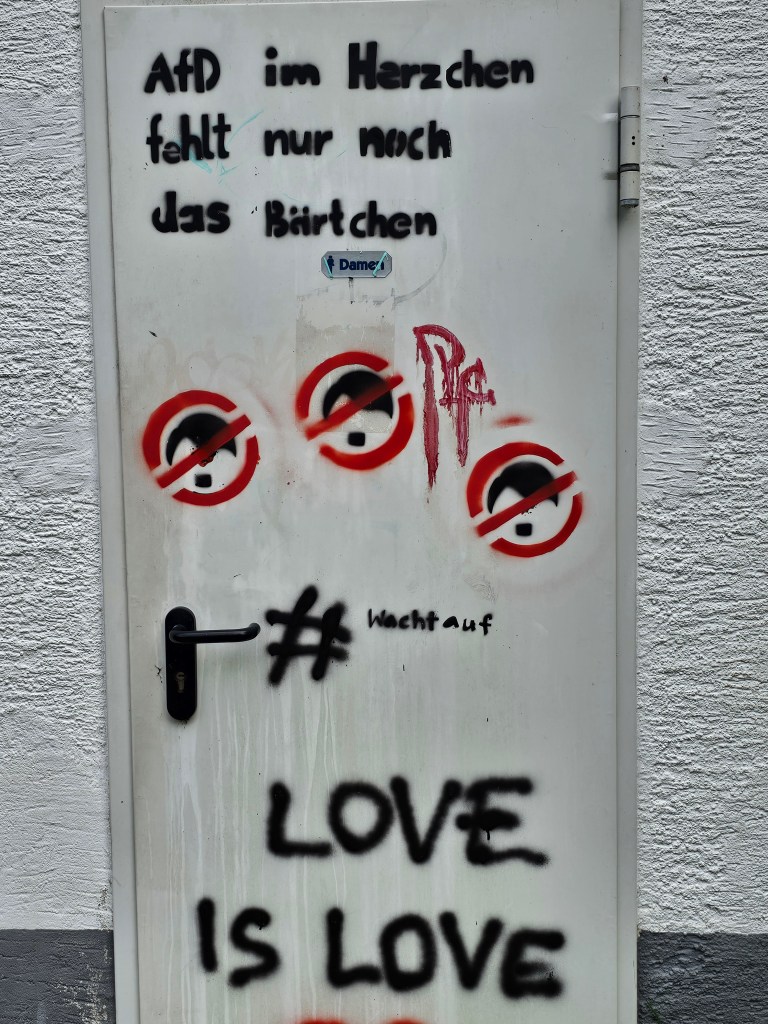 AfD im Herzchen
fehlt nur noch
das Bärtchen
Damen
# Wacht auf
LOVE
IS LOVE